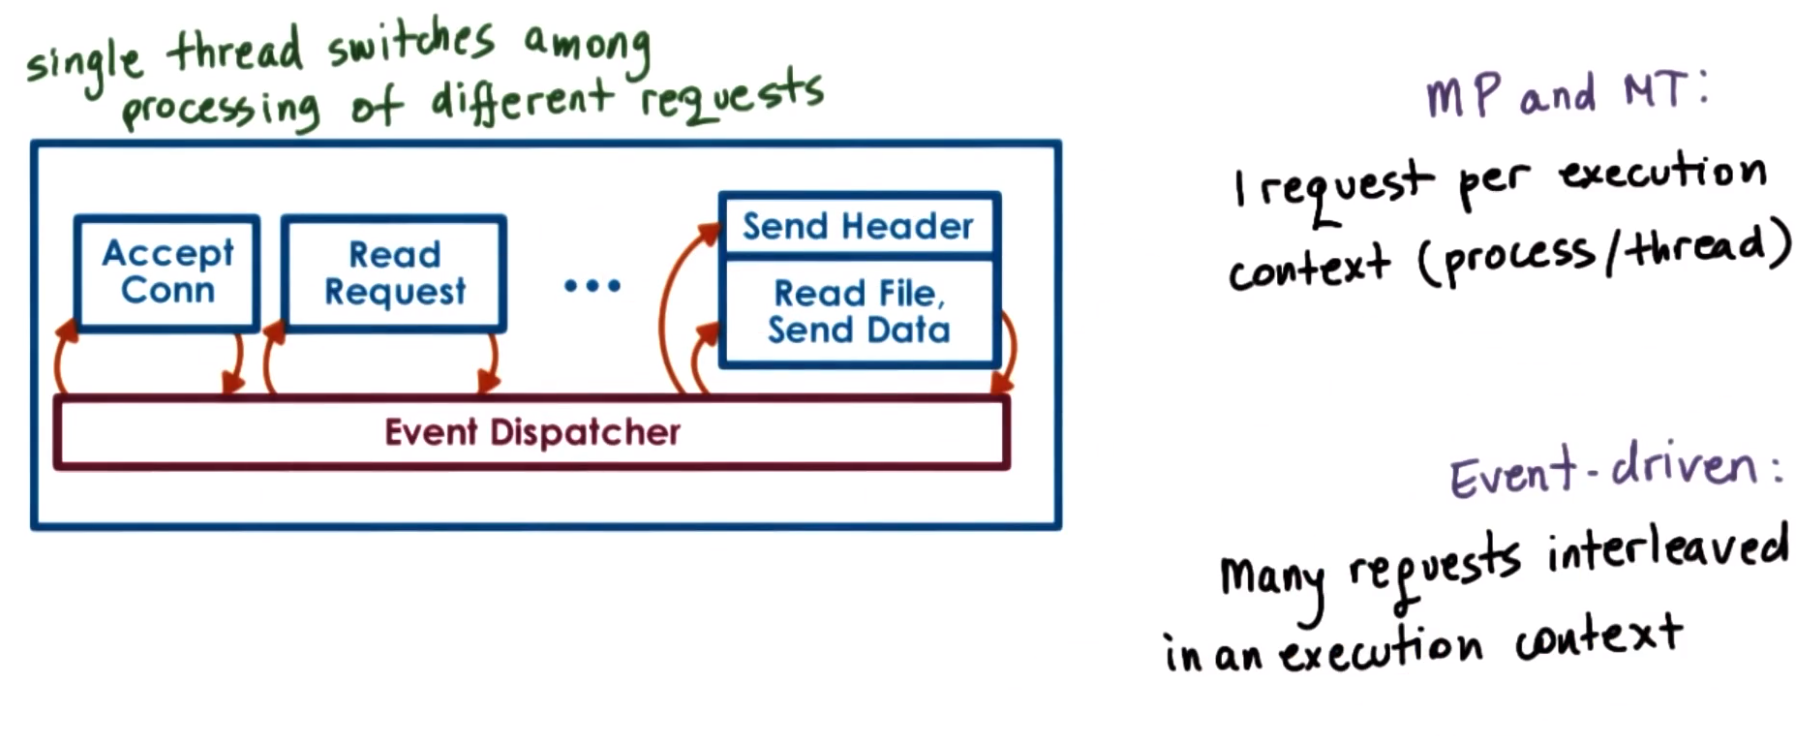 single thread switches among
processing of different requests
Accept
Conn
Read
Request
...
Send Header
Read File,
Send Data
Event Dispatcher
MP and MT:
1 request per execution
context (process/thread)
Event-driven:
Many requests interleaved
in an execution context